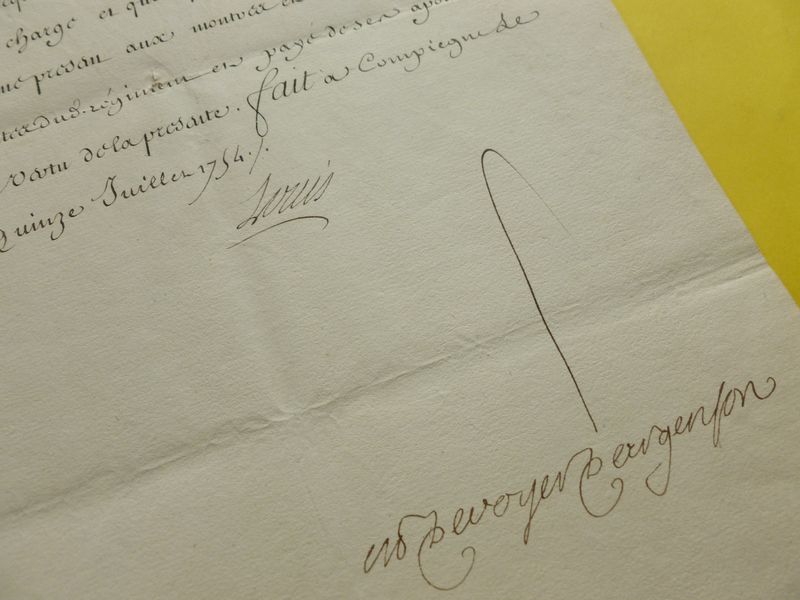 charge et que
me presant aux montres et
du d. régiment en payé de ses apoi
vertu de la presente. fait a Compiegne le
Quinze Juillet 1754./.
Louis
de voyer d'argenson